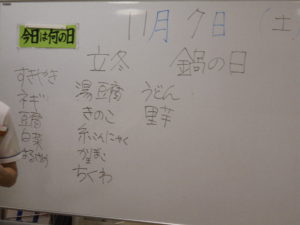 今日は何の日
11月7日 (土)
立冬 鍋の日
すきやき
ネギ
豆腐
白菜
湯豆腐
きのこ
糸こんにゃく
かまぼこ
ちくわ
うどん
里芋